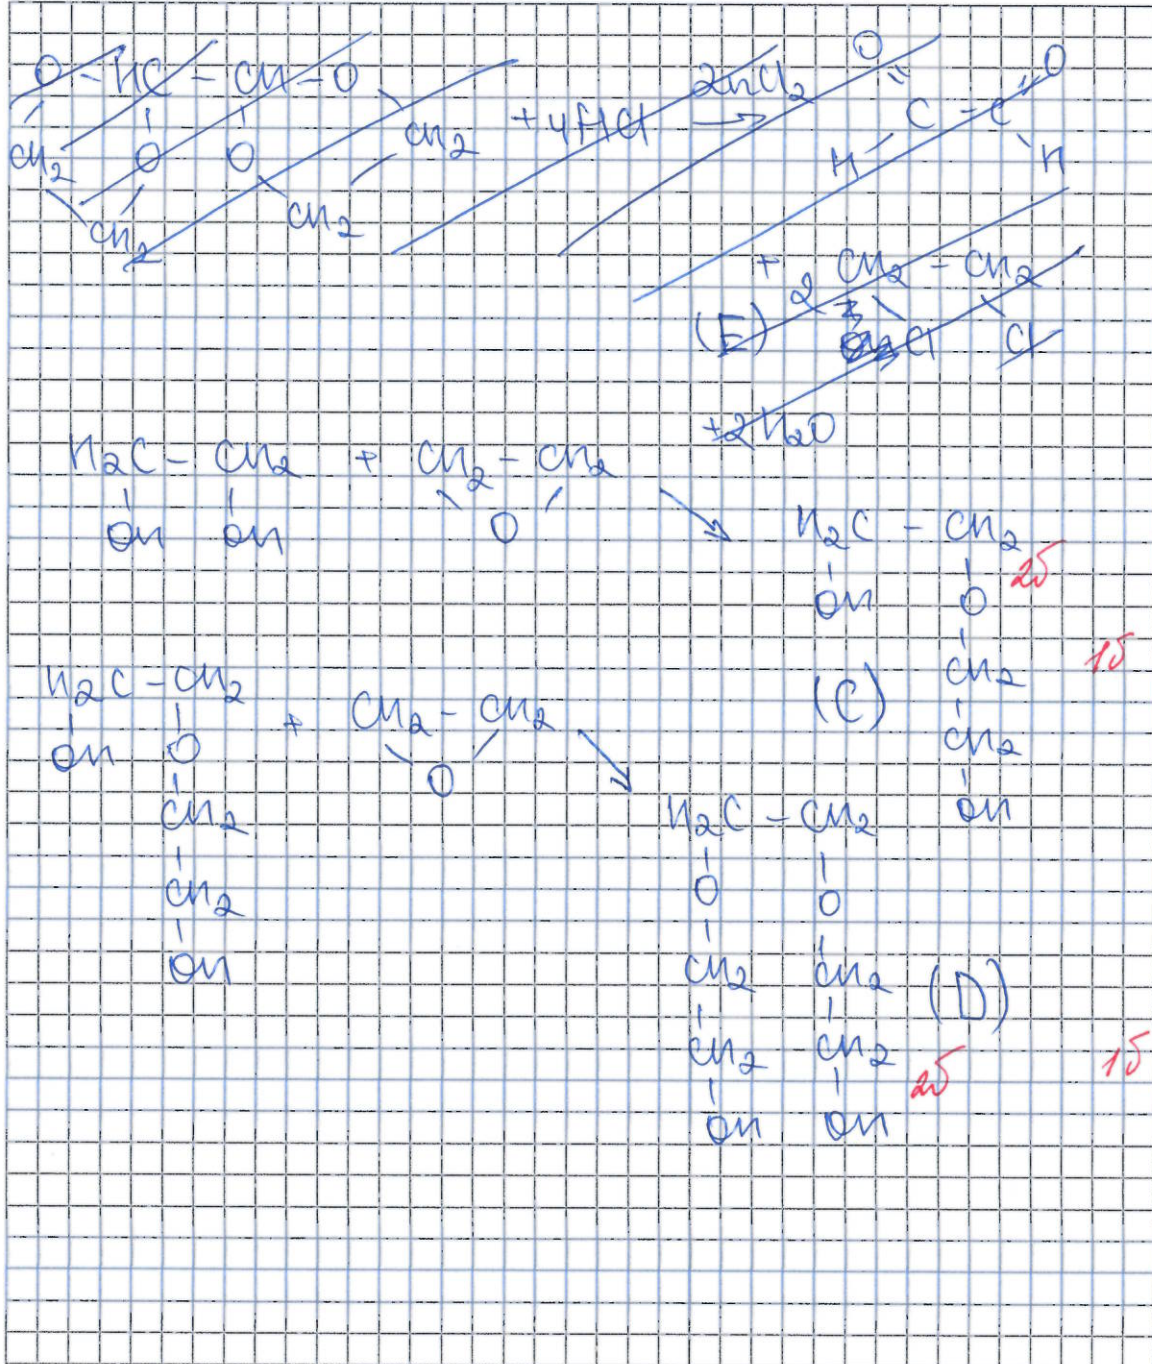 O - HC - CH - O
CH2 O O CH2 + 4HCl → ZnCl2
CH2 CH2
O O
C - C
H H
+ 2 CH2 - CH2
(E) Cl Cl
+2H2O
H2C - CH2 + CH2 - CH2 →
OH OH O
H2C - CH2
OH O 2б
CH2 1б
(C) CH2
OH
H2C - CH2 + CH2 - CH2 →
OH O O
CH2
CH2
OH
H2C - CH2
O O
CH2 CH2 (D)
CH2 CH2 1б
OH OH 2б